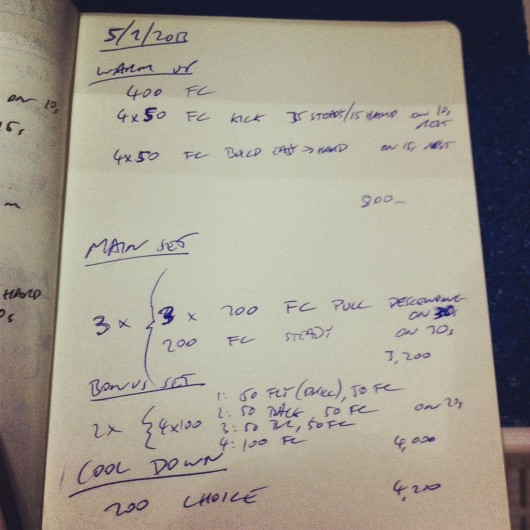 5/2/2013
WARM UP
400 FC
4x50 FC KICK 35 STEADY/15 HARD ON 10s REST
4x50 FC BUILD EASY > HARD ON 15s REST
800-
MAIN SET
3 x { 3 x 200 FC PULL DESCENDING ON 30s
200 FC STEADY ON 30s
3,200
BONUS SET
2x { 4x100 1: 50 FLY (DRILL), 50 FC
2: 50 BACK 50 FC ON 20s
3: 50 BR, 50 FC
4: 100 FC
4,000
COOL DOWN
200 CHOICE
4,200
ON 10s
15s
m
HARD